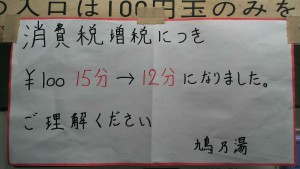 入口は100円玉のみを
消費税増税につき
¥100 15分→12分になりました。
ご理解ください
鳩乃湯